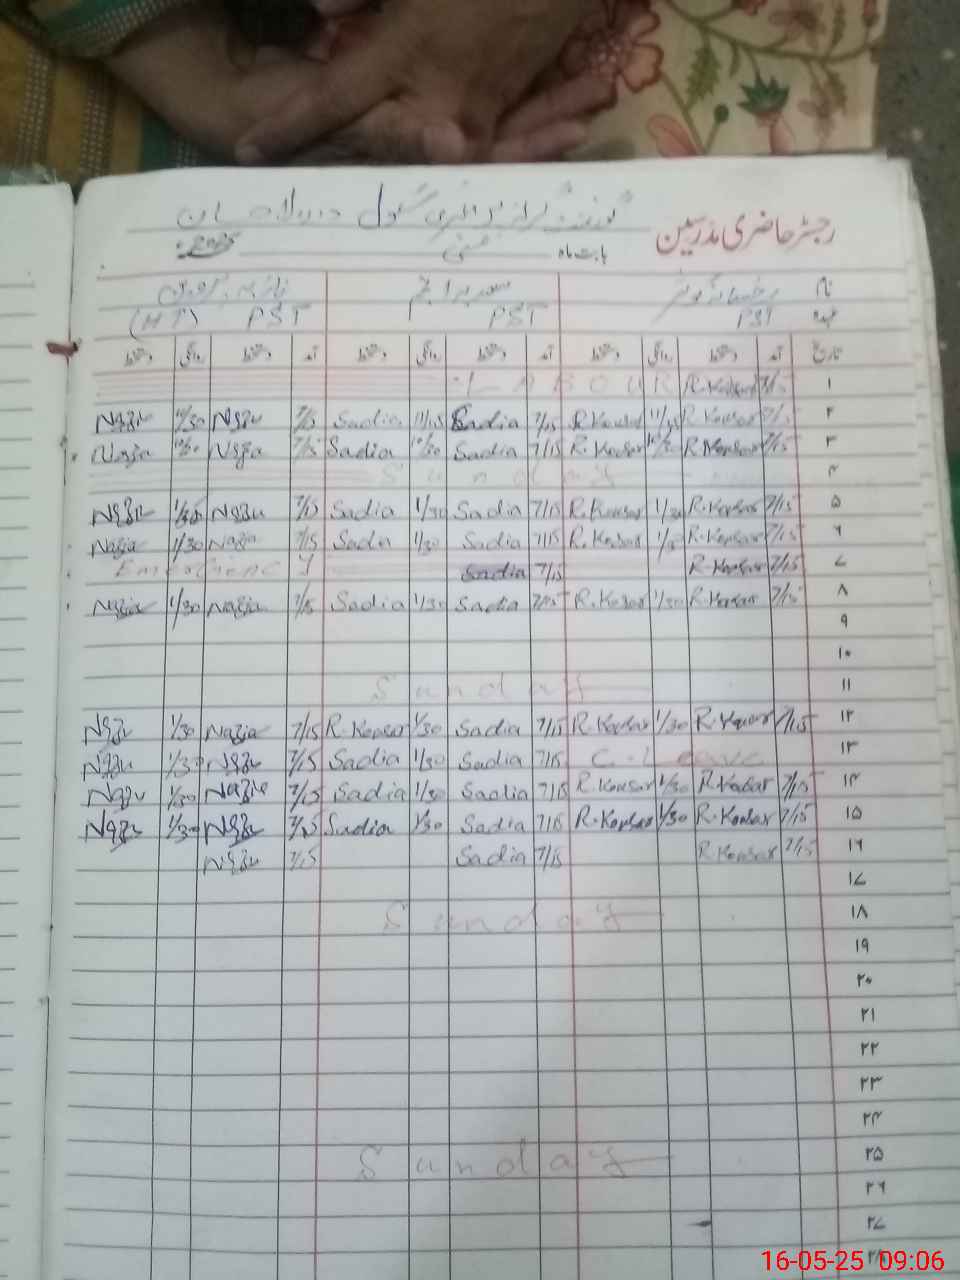 رجسٹر حاضری مدرسین
گورنمنٹ گرلز پرائمری سکول
بابت ماہ مئی 2025
نام
عہدہ PST PST PST (HT)
تاریخ آمد دستخط روانگی دستخط آمد دستخط روانگی دستخط آمد دستخط روانگی دستخط
۱ 7/15 R.Kousar LABOUR
۲ 7/15 R.Kousar 11/15 R.Kousar 7/15 Sadia 11/15 Sadia 7/15 Nazia 11/30 Nazia
۳ 7/15 R.Kousar 10/30 R.Kousar 7/15 Sadia 10/30 Sadia 7/15 Nazia 10/30 Nazia
۴ Sunday
۵ 7/15 R.Kousar 1/30 R.Kousar 7/15 Sadia 1/30 Sadia 7/15 Nazia 1/30 Nazia
۶ 7/15 R.Kousar R.Kousar 7/15 Sadia 1/30 Sadia 7/15 Nazia 1/30 Nazia
۷ 7/15 R.Kousar 7/15 Sadia
۸ 7/15 R.Kousar 1/30 R.Kousar 7/15 Sadia 1/30 Sadia 7/15 Nazia 1/30 Nazia
۹
۱۰
۱۱ Sunday
۱۲ 7/15 R.Kousar 1/30 R.Kousar 7/15 Sadia 1/30 R.Kousar 7/15 Nazia 1/30 Nazia
۱۳ C.Leave 7/15 Sadia 1/30 Sadia 7/15 Nazia 1/30 Nazia
۱۴ 7/15 R.Kousar 1/30 R.Kousar 7/15 Sadia 1/30 Sadia 7/15 Nazia 1/30 Nazia
۱۵ 7/15 R.Kousar 1/30 R.Kousar 7/15 Sadia 1/30 Sadia 7/15 Nazia 1/30 Nazia
۱۶ 7/15 R.Kousar 7/15 Sadia 7/15 Nazia
۱۷
۱۸ Sunday
۱۹
۲۰
۲۱
۲۲
۲۳
۲۴
۲۵ Sunday
۲۶
۲۷
۲۸
16-05-25 09:06